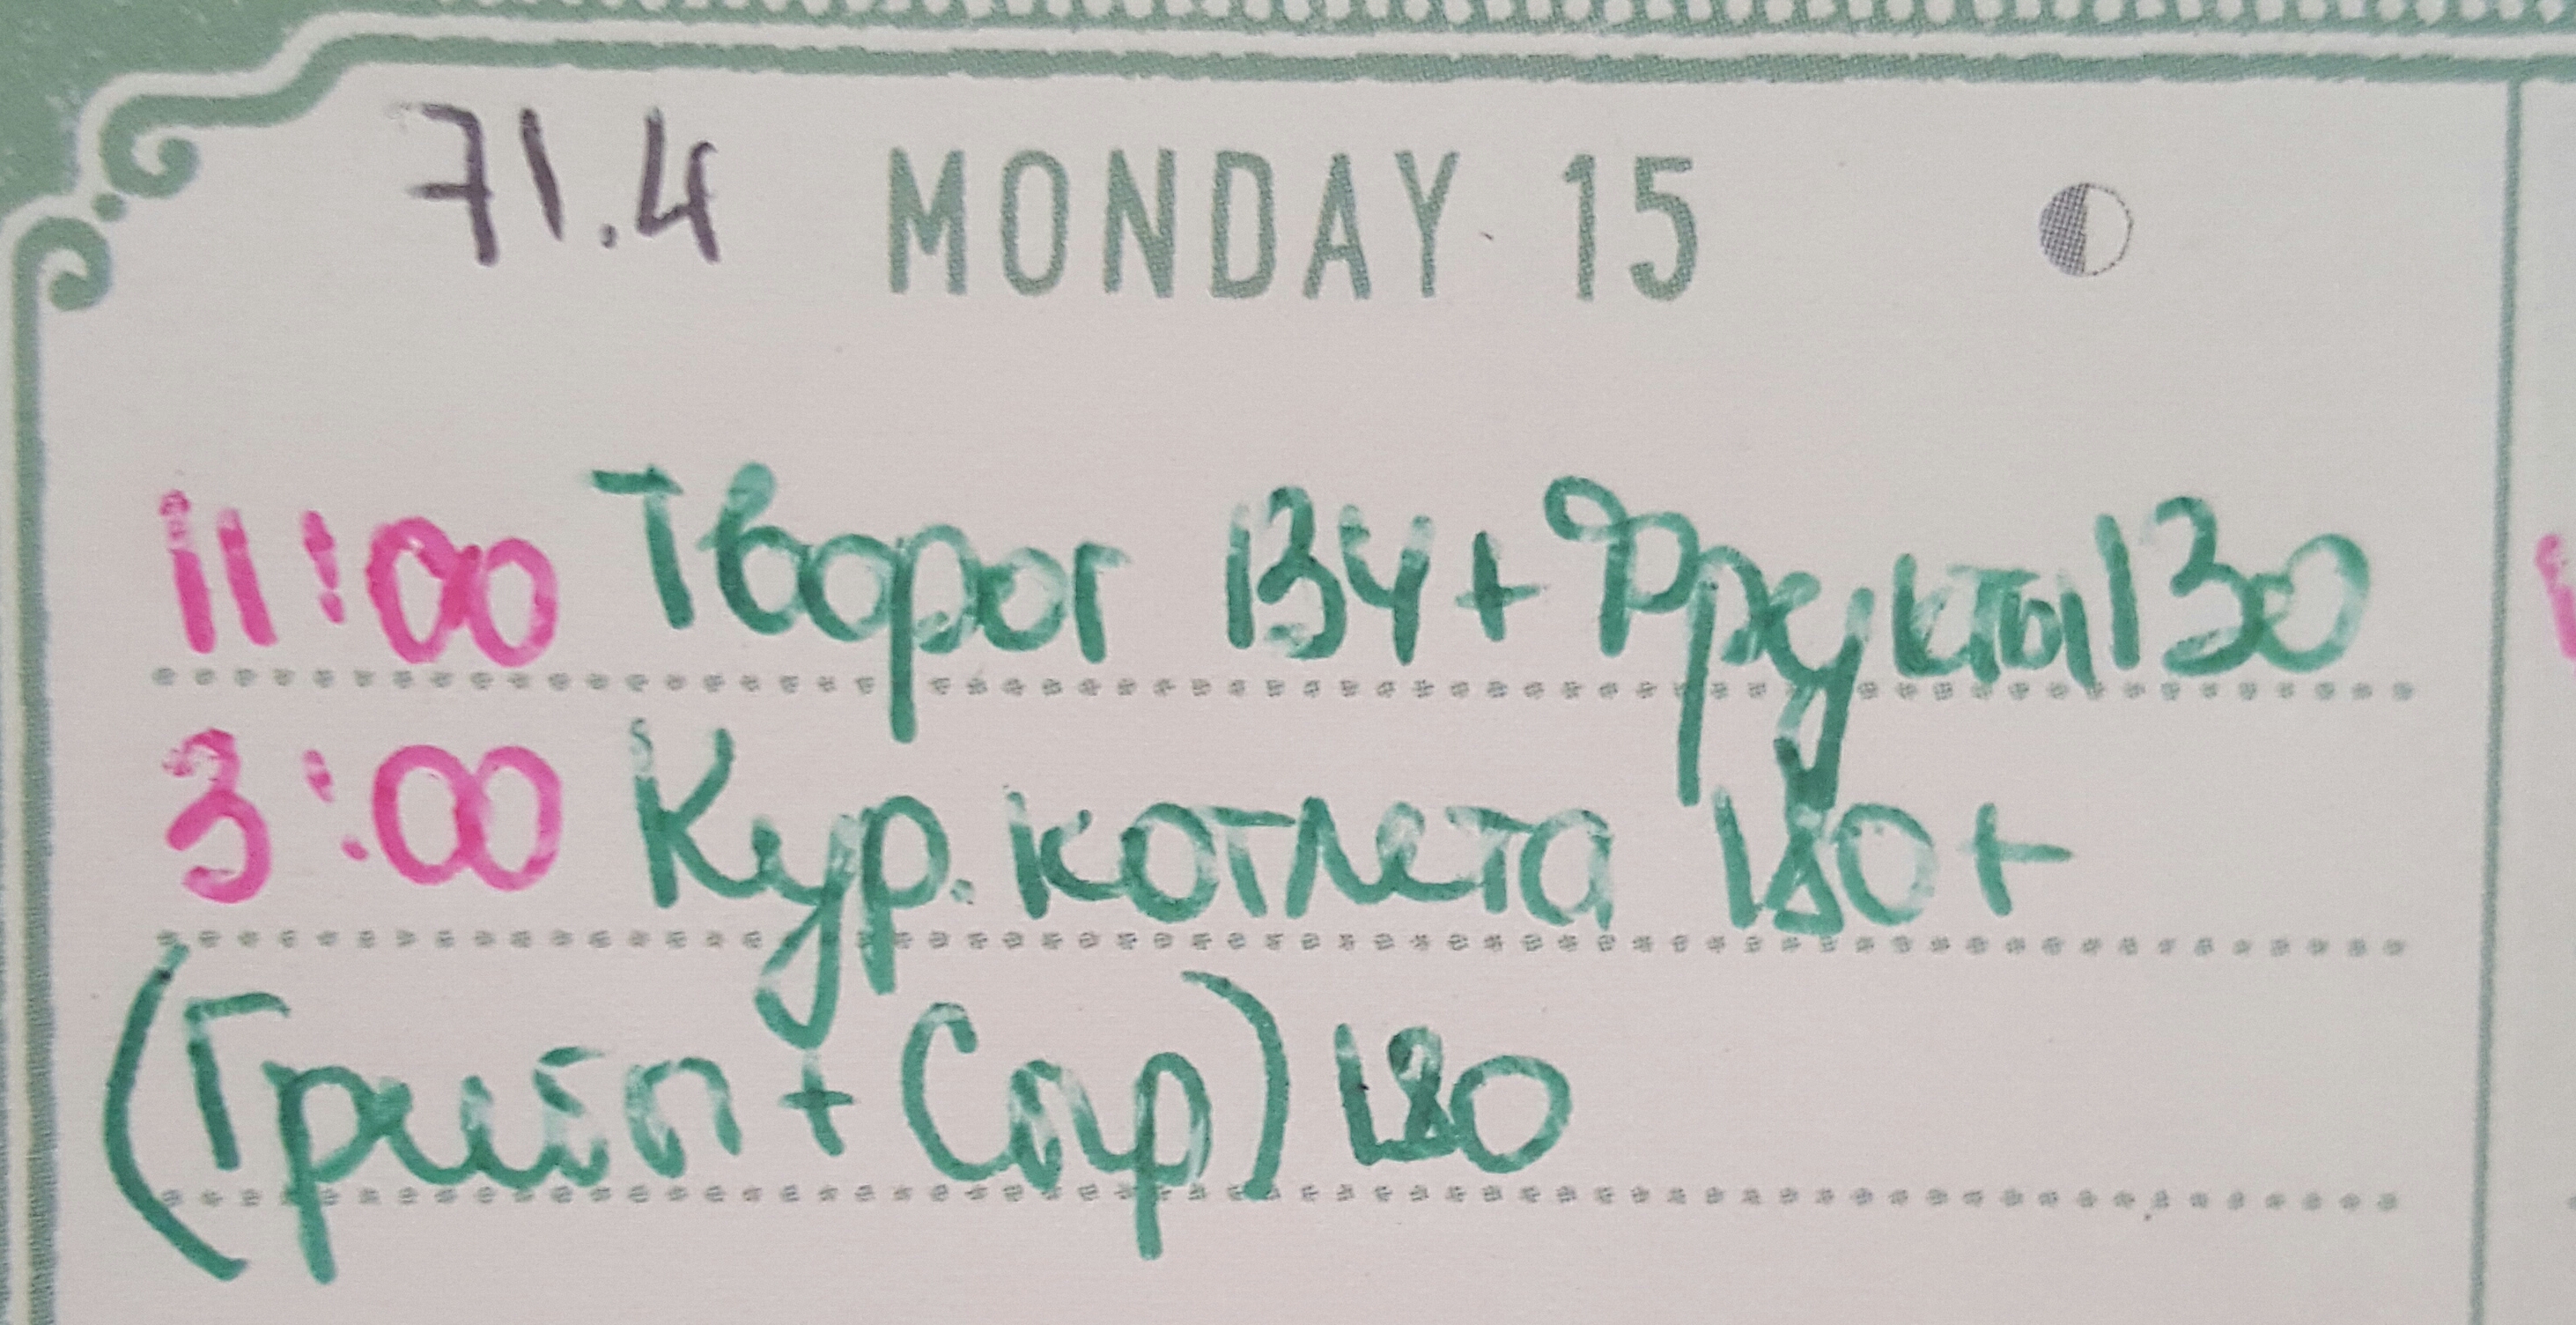 71.4 MONDAY 15
11:00 Творог 134+Фрукты 130
3:00 Кур. котлета 180+
(Грейп+Сар) 180